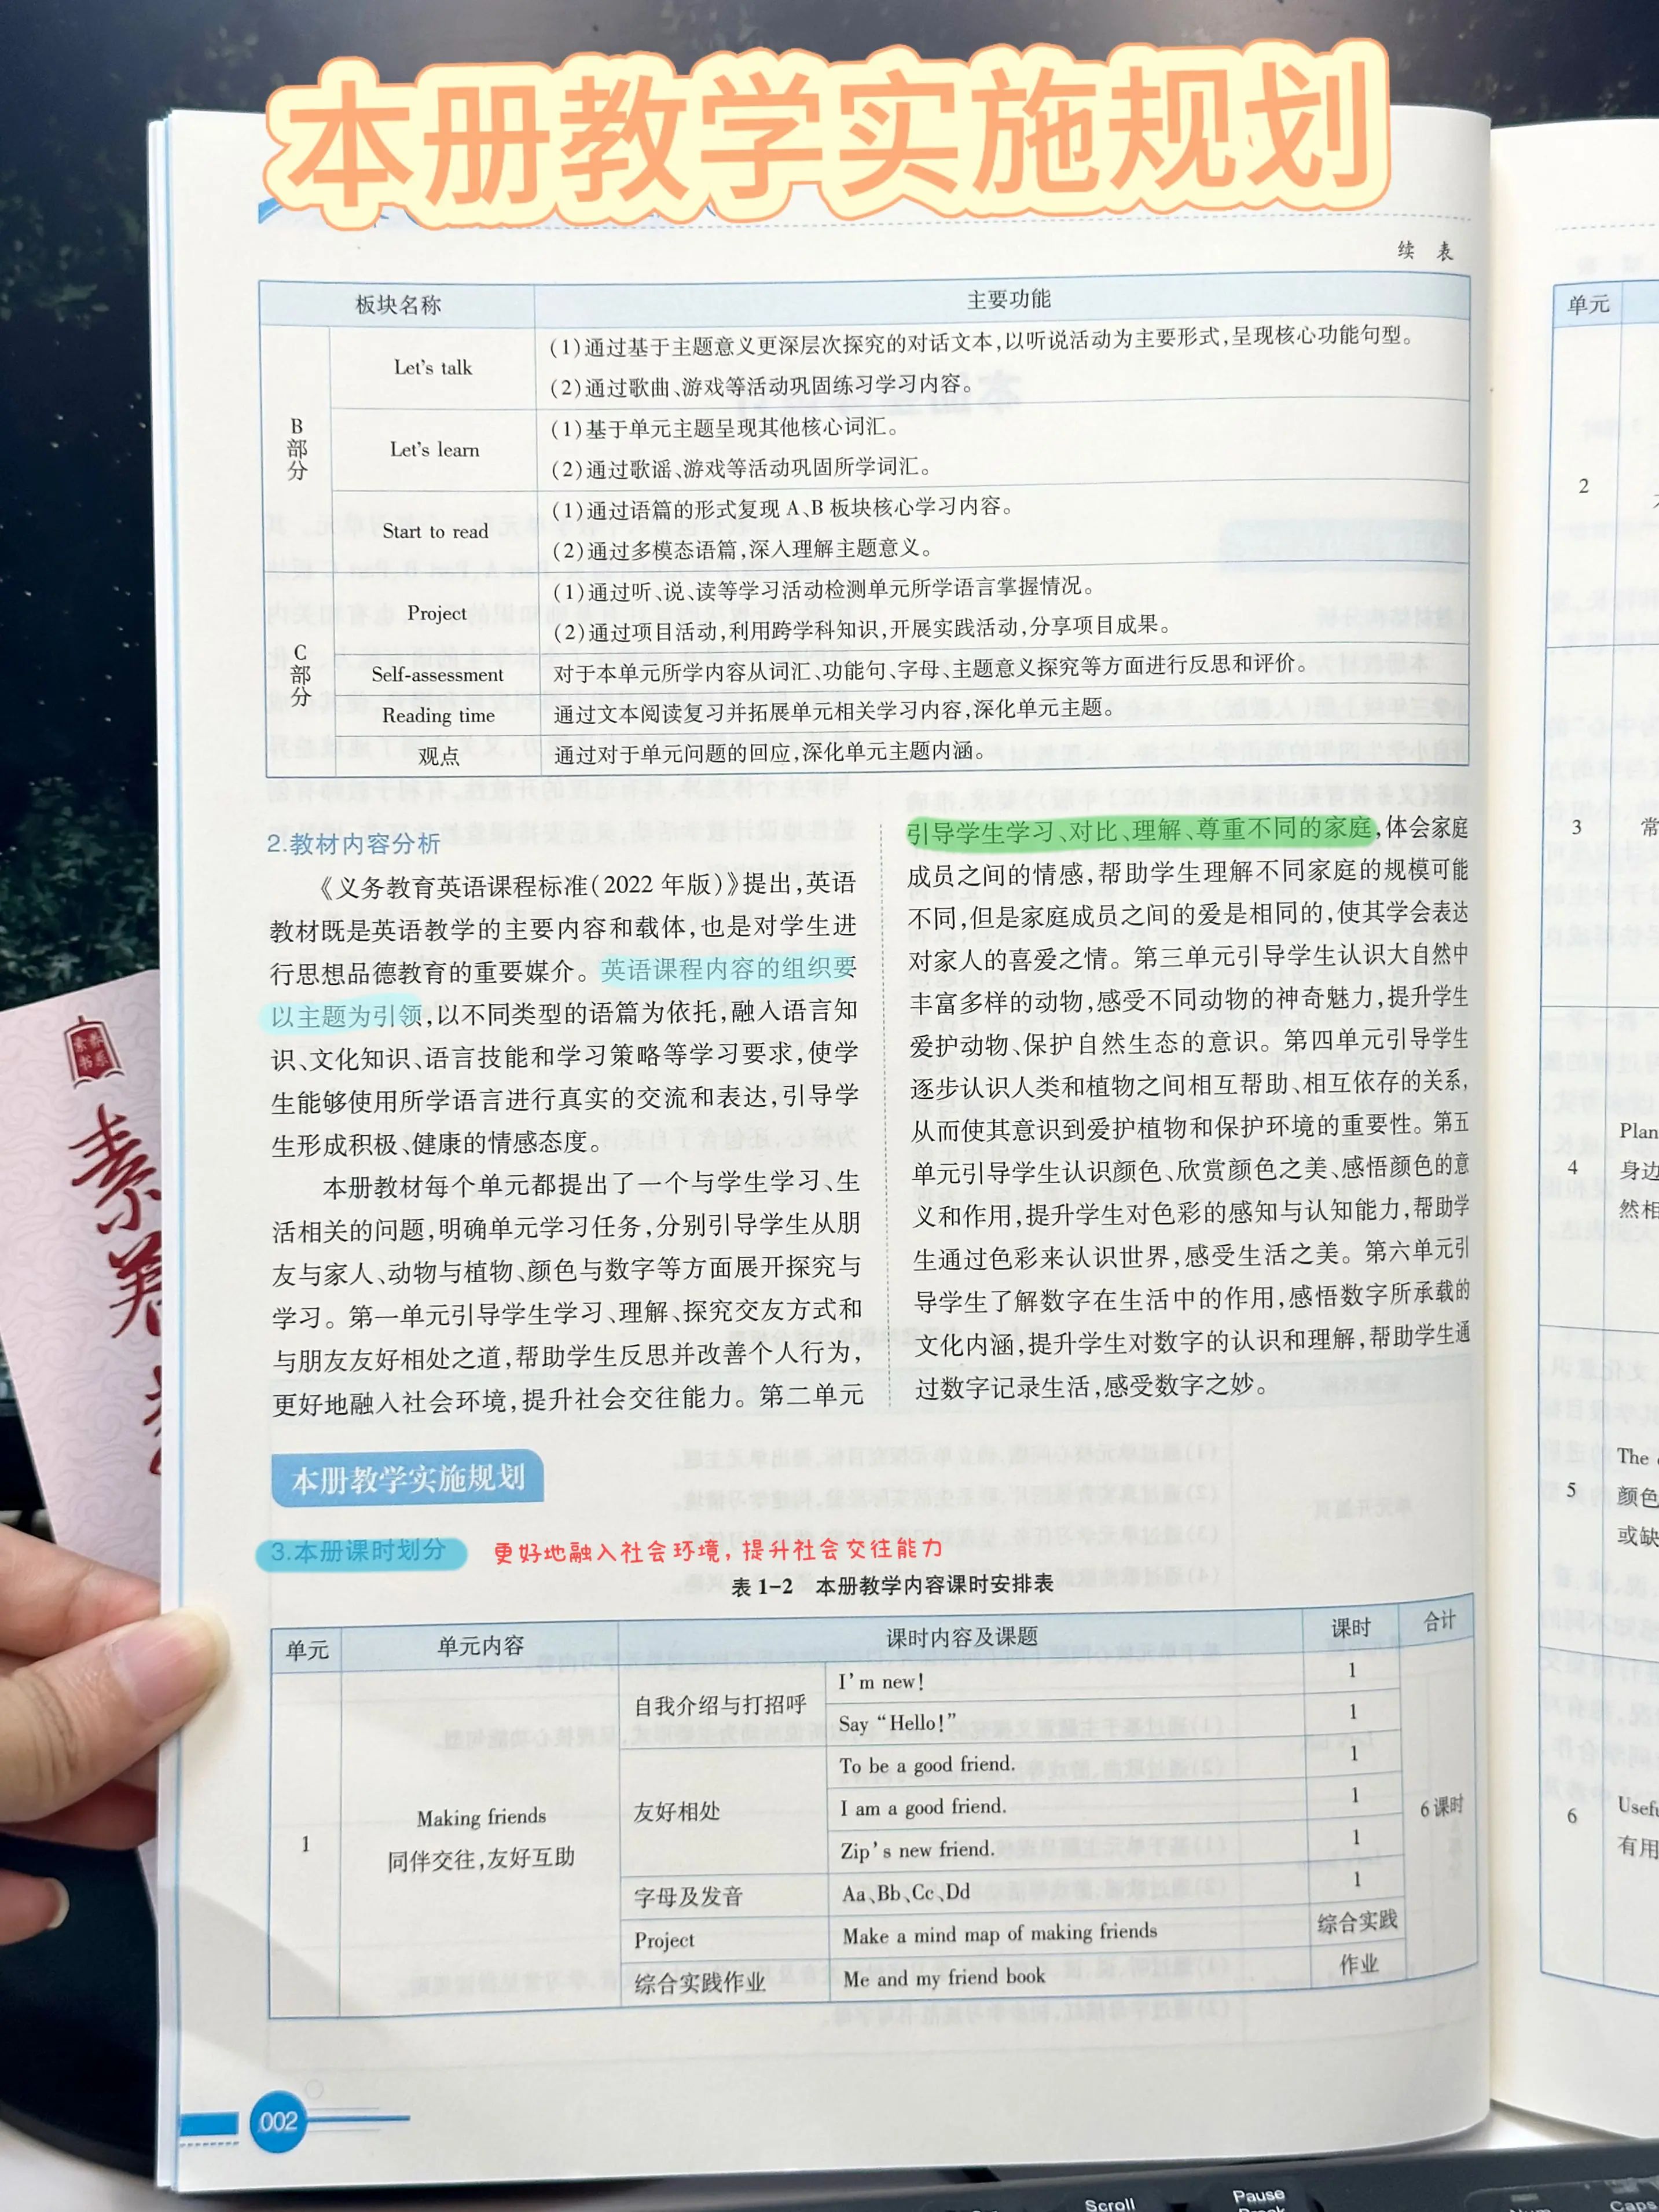 本册教学实施规划
续 表
板块名称
主要功能
B部分
Let's talk
(1)通过基于主题意义更深层次探究的对话文本,以听说活动为主要形式,呈现核心功能句型。
(2)通过歌曲、游戏等活动巩固练习学习内容。
Let's learn
(1)基于单元主题呈现其他核心词汇。
(2)通过歌谣、游戏等活动巩固所学词汇。
Start to read
(1)通过语篇的形式复现 A、B 板块核心学习内容。
(2)通过多模态语篇,深入理解主题意义。
C部分
Project
(1)通过听、说、读等学习活动检测单元所学语言掌握情况。
(2)通过项目活动,利用跨学科知识,开展实践活动,分享项目成果。
Self-assessment
对于本单元所学内容从词汇、功能句、字母、主题意义探究等方面进行反思和评价。
Reading time
通过文本阅读复习并拓展单元相关学习内容,深化单元主题。
观点
通过对于单元问题的回应,深化单元主题内涵。
2.教材内容分析
《义务教育英语课程标准(2022 年版)》提出,英语
教材既是英语教学的主要内容和载体,也是对学生进
行思想品德教育的重要媒介。英语课程内容的组织要
以主题为引领,以不同类型的语篇为依托,融入语言知
识、文化知识、语言技能和学习策略等学习要求,使学
生能够使用所学语言进行真实的交流和表达,引导学
生形成积极、健康的情感态度。
本册教材每个单元都提出了一个与学生学习、生
活相关的问题,明确单元学习任务,分别引导学生从朋
友与家人、动物与植物、颜色与数字等方面展开探究与
学习。第一单元引导学生学习、理解、探究交友方式和
与朋友友好相处之道,帮助学生反思并改善个人行为,
更好地融入社会环境,提升社会交往能力。第二单元
引导学生学习、对比、理解、尊重不同的家庭,体会家庭
成员之间的情感,帮助学生理解不同家庭的规模可能
不同,但是家庭成员之间的爱是相同的,使其学会表达
对家人的喜爱之情。第三单元引导学生认识大自然中
丰富多样的动物,感受不同动物的神奇魅力,提升学生
爱护动物、保护自然生态的意识。第四单元引导学生
逐步认识人类和植物之间相互帮助、相互依存的关系,
从而使其意识到爱护植物和保护环境的重要性。第五
单元引导学生认识颜色、欣赏颜色之美、感悟颜色的意
义和作用,提升学生对色彩的感知与认知能力,帮助学
生通过色彩来认识世界,感受生活之美。第六单元引
导学生了解数字在生活中的作用,感悟数字所承载的
文化内涵,提升学生对数字的认识和理解,帮助学生通
过数字记录生活,感受数字之妙。
本册教学实施规划
3.本册课时划分
更好地融入社会环境,提升社会交往能力
表 1-2 本册教学内容课时安排表
单元
单元内容
课时内容及课题
课时
合计
1
Making friends
同伴交往,友好互助
自我介绍与打招呼
I'm new!
1
Say “Hello!”
1
友好相处
To be a good friend.
1
I am a good friend.
1
Zip's new friend.
1
字母及发音
Aa、Bb、Cc、Dd
1
Project
Make a mind map of making friends
综合实践作业
Me and my friend book
综合实践
作业
6 课时
002
单元
2
3
常
4
Plan
身边
然相
5
The
颜色
或缺
6
Usefu
有用
素养
Scroll
Pause